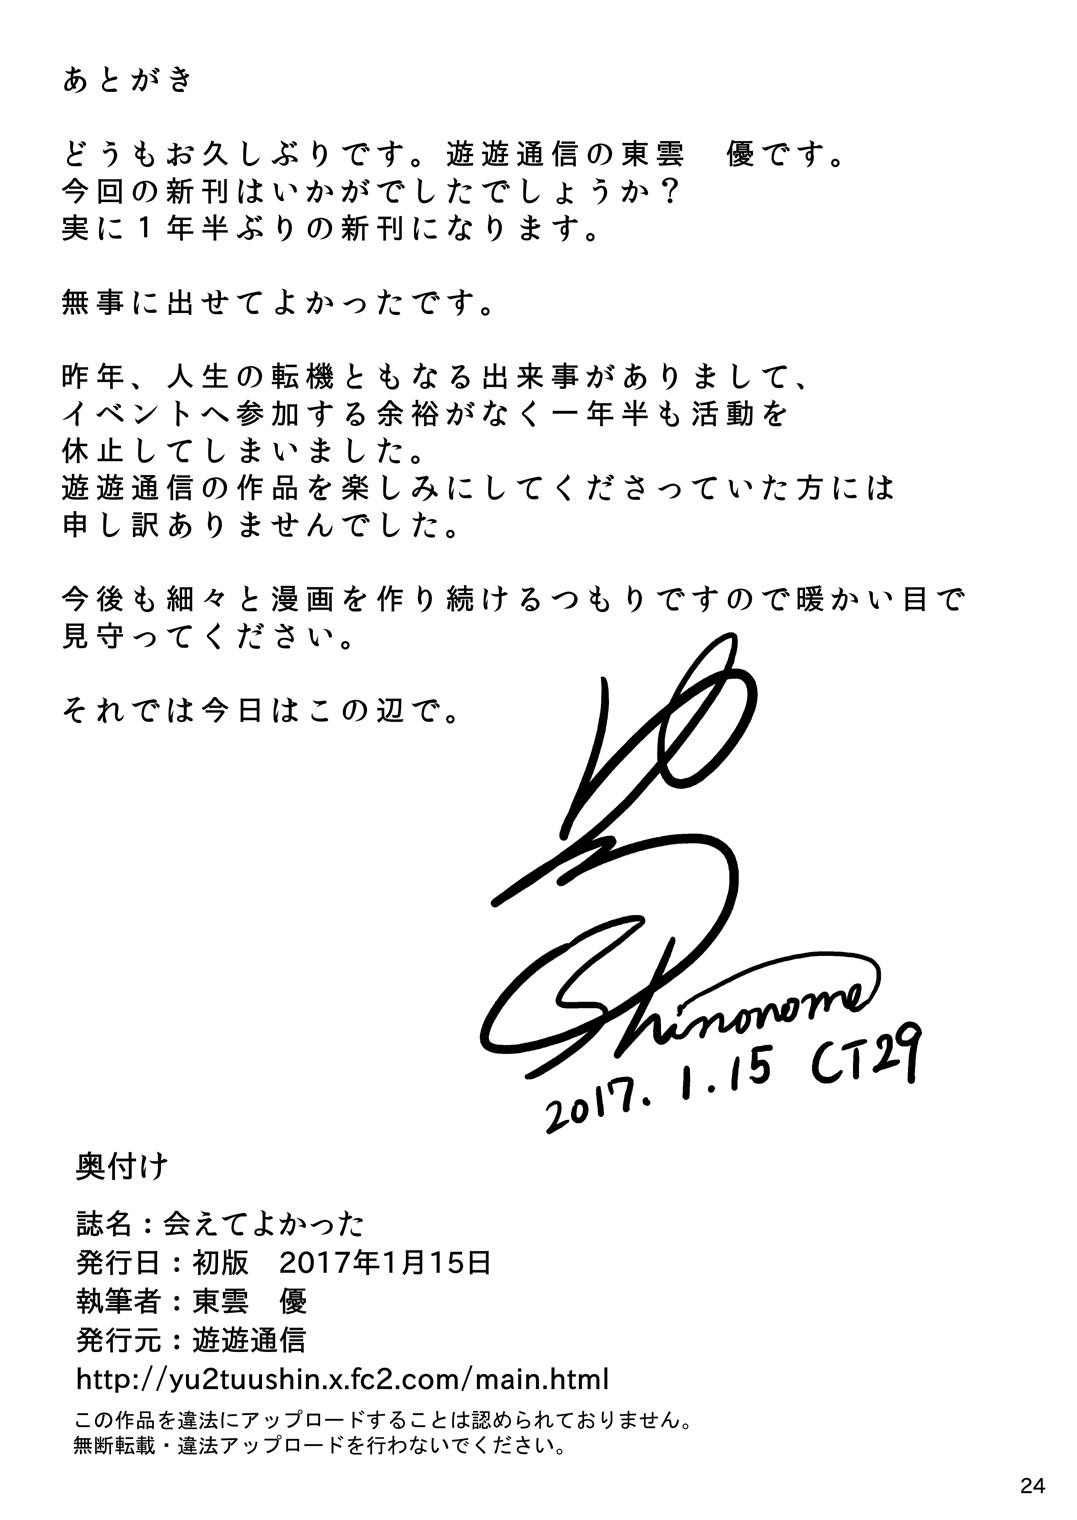 あとがき
どうもお久しぶりです。遊遊通信の東雲　優です。
今回の新刊はいかがでしたでしょうか？
実に１年半ぶりの新刊になります。
無事に出せてよかったです。
昨年、人生の転機ともなる出来事がありまして、
イベントへ参加する余裕がなく一年半も活動を
休止してしまいました。
遊遊通信の作品を楽しみにしてくださっていた方には
申し訳ありませんでした。
今後も細々と漫画を作り続けるつもりですので暖かい目で
見守ってください。
それでは今日はこの辺で。
ゆう
Shinonome
2017.1.15 CT29
奥付け
誌名：会えてよかった
発行日：初版　2017年1月15日
執筆者：東雲　優
発行元：遊遊通信
http://yu2tuushin.x.fc2.com/main.html
この作品を違法にアップロードすることは認められておりません。
無断転載・違法アップロードを行わないでください。
24